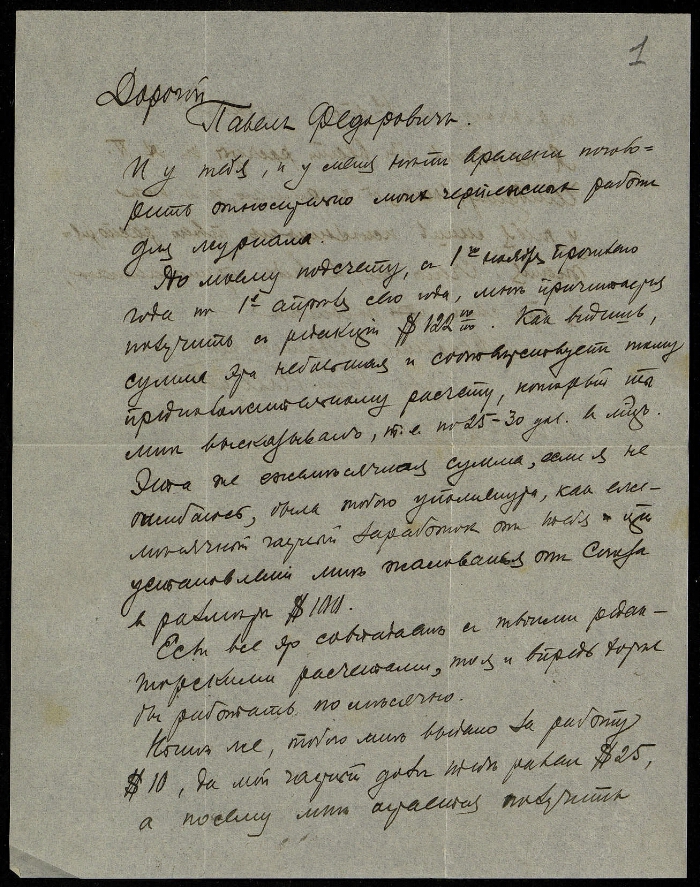 1
Дорогой
Павелъ Федоровичъ.
И у тебя, и у меня нѣтъ времени погово-
рить относительно моихъ чертежныхъ работъ
для журнала.
По моему подсчету, съ 1го ноября прошлаго
года по 1е апрѣля сего года, мнѣ причитается
получить съ редакціи $122 00/00. Какъ видишь,
сумма эта небольшая и соотвѣтствуетъ тому
предположительному расчету, который ты
мнѣ высказывалъ, т.е. по 25-30 дол. въ мѣц.
Эта же ежемѣсячная сумма, если я не
ошибаюсь, была тобою упомянута, какъ еже-
мѣсячный частный заработокъ отъ тебя при
установленіи мнѣ жалованья отъ Союза
въ размѣрѣ $100.
Если все это совпадаетъ съ твоими редак-
торскими расчетами, то я и впредь хотѣлъ
бы работать помѣсячно.
тобою мнѣ выдано за работу
$10, да мой частный долгъ тебѣ равенъ $25,
а посему мнѣ остается получить